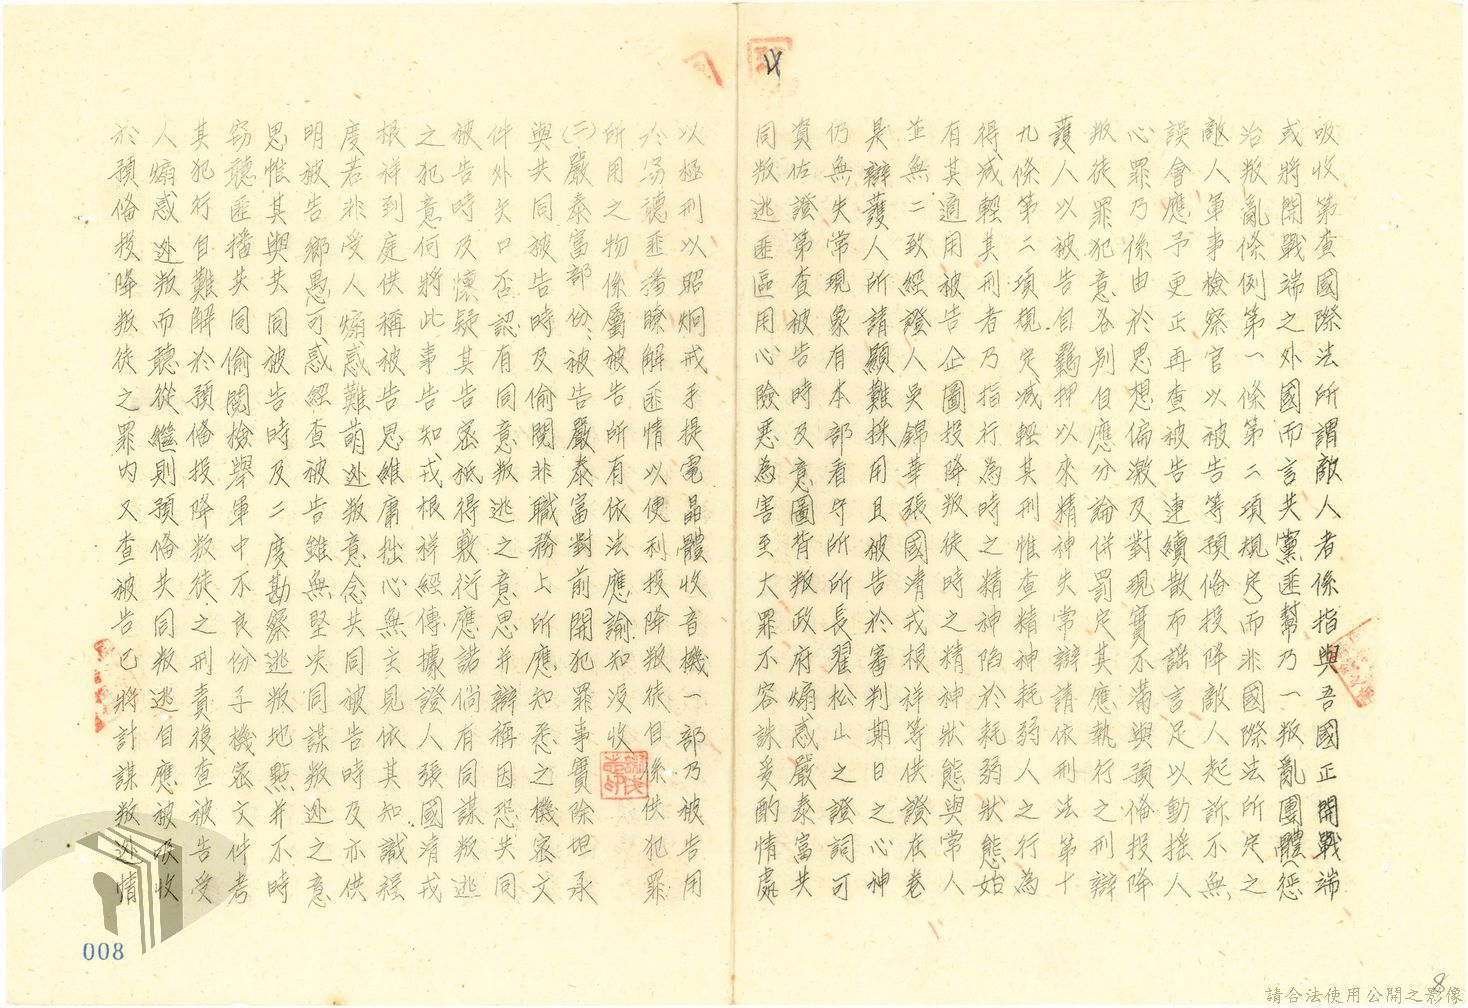 4
吸收第查國際法所謂敵人者係指與吾國正開戰端
或將開戰端之外國而言共黨匪幫乃一叛亂團體惩
治叛亂條例第一條第二項規定而非國際法所定之
敵人軍事檢察官以被告等預俻投降敵人起訴不無
誤會應予更正再查被告連續散布謠言足以動搖人
心罪乃係由於思想偏激及對現實不滿與預俻投降
叛徒罪犯意各別自應分論併罰定其應執行之刑辯
護人以被告自羈押以來精神失常辯請依刑法第十
九條第二項規定減輕其刑惟查精神耗弱人之行為
得減輕其刑者乃指行為時之精神陷於耗弱狀態始
有其適用被告企圖投降叛徒時之精神狀態與常人
並無二致經證人吳錦華張國清戎根祥等供證在卷
是辯護人所請顯難採用且被告於審判期日之心神
仍無失常現象有本部看守所所長翟松山之證詞可
資佐證第查被告時及意圖背叛政府煽惑嚴泰富共
同叛逃匪區用心險惡為害至大罪不容誅爰酌情處
以極刑以昭炯戒手提電晶體收音機一部乃被告用
於窃聽匪播瞭解匪情以便利投降叛徒自係供犯罪
所用之物係屬被告所有依法應諭知沒收
(二)嚴泰富部份、被告嚴泰富對前開犯罪事實除坦承
與共同被告時及偷閱非職務上所應知悉之機密文
件外矢口否認有同意叛逃之意思并辯稱因恐共同
被告時及懷疑其告密祇得敷衍應諾倘有同謀叛逃
之犯意何將此事告知戎根祥經傳據證人張國清戎
根祥到庭供稱被告思維庸拙心無主見依其知識程
度若非受人煽惑難萌逃叛意念共同被告時及亦供
明被告鄉愚可惑經查被告雖無堅决同謀叛逃之意
思惟其與共同被告時及二度勘察逃叛地點并不時
窃聽匪播共同偷閱檢舉軍中不良份子機密文件考
其犯行自難解於預俻投降叛徒之刑責復查被告受
人煽惑逃叛而聽從繼則預俻共同叛逃自應被吸收
於預俻投降叛徒之罪内又查被告已將計謀叛逃情
008
8
請合法使用公開之影像